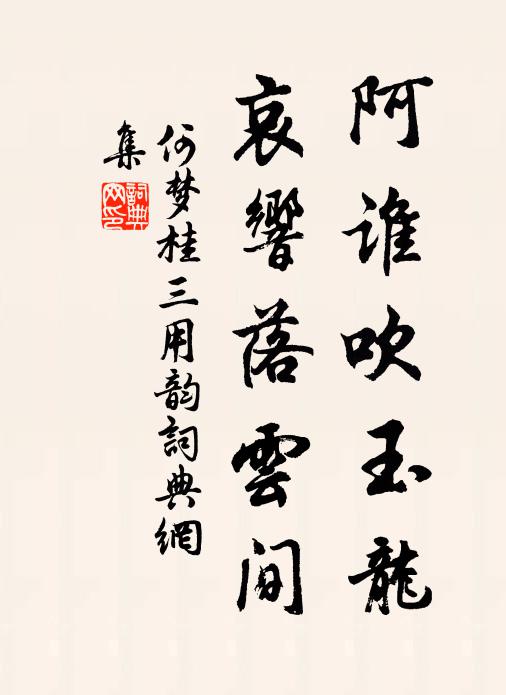 阿谁吹玉龍
哀響落雲间
何梦桂三用韵詞典網
集
詞典網印